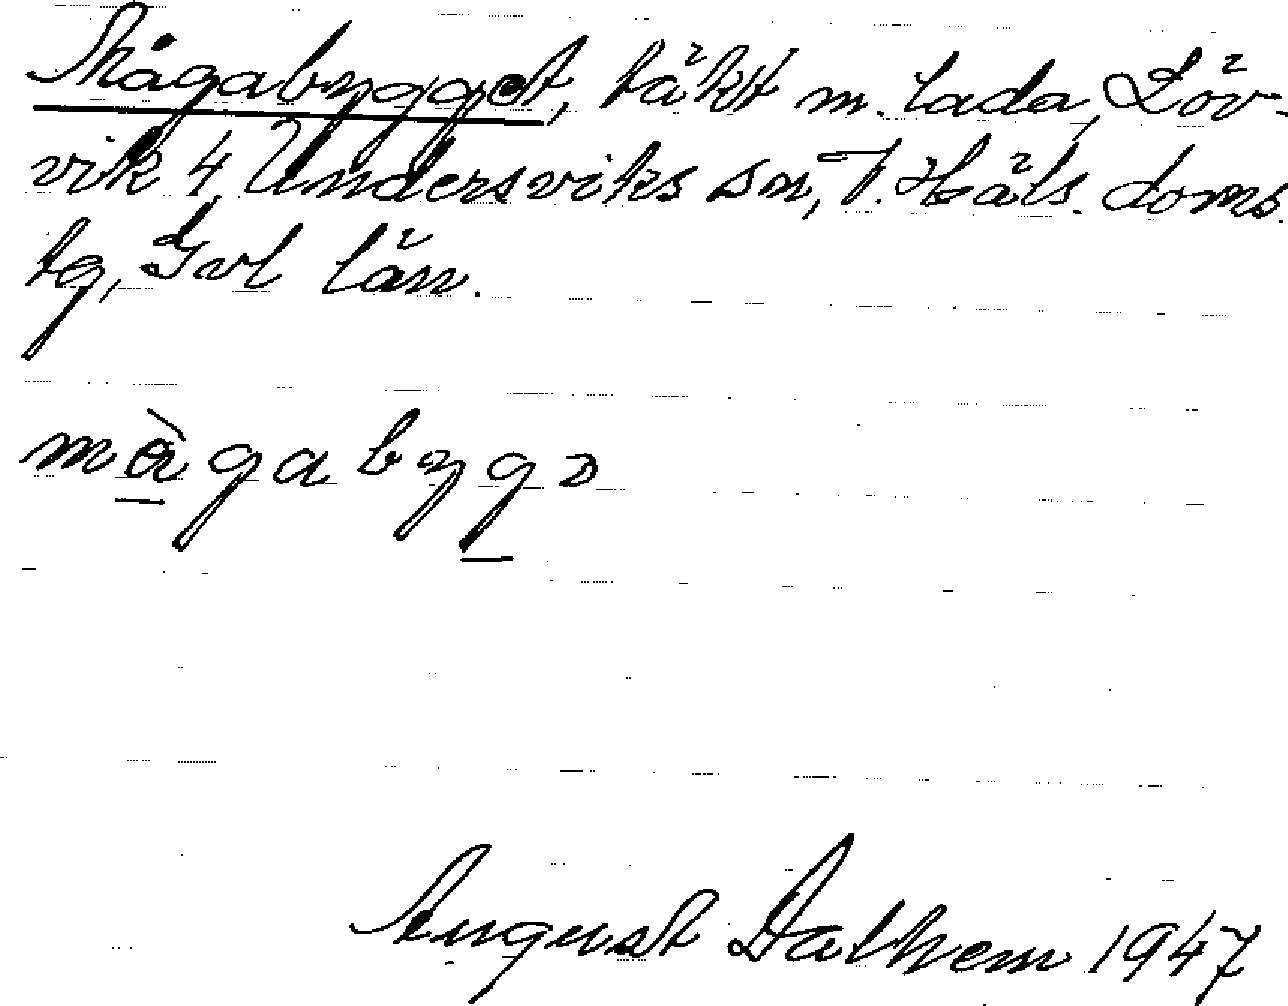 Mågabygget, täkt m. lada, Löv-
vik 4, Undersviks sn, V. Häls. doms.
tg, Gvl län.
mågabygə
August Dalhem 1947